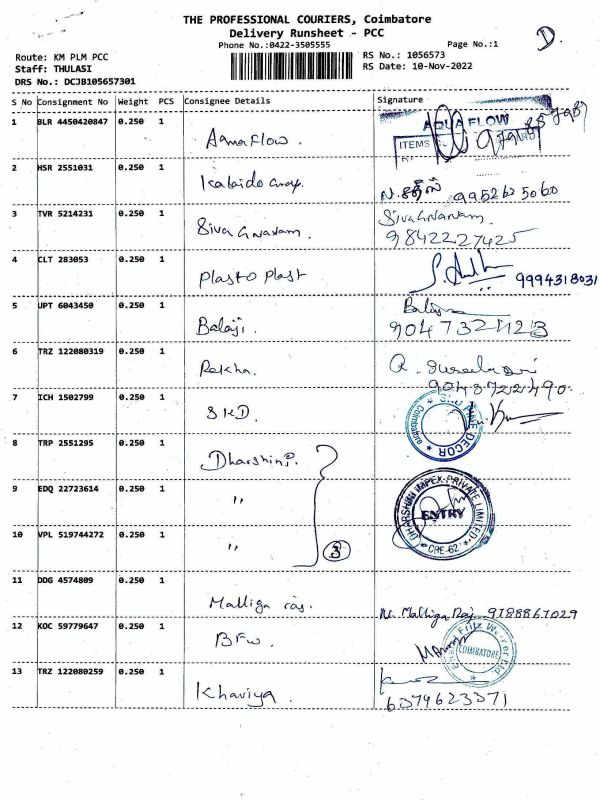 THE PROFESSIONAL COURIERS, Coimbatore
Delivery Runsheet - PCC
Phone No.:0422-3505555
Page No.:1
D.
Route: KM PLM PCC
RS No.: 1056573
Staff: THULASI
RS Date: 10-Nov-2022
DRS No.: DCJB105657301
S No Consignment No Weight PCS Consignee Details Signature
1 BLR 4450420847 0.250 1 Aqua Flow.
AQUA FLOW
ITEMS
2 HSR 2551031 0.250 1 9952625060
3 TVR 5214231 0.250 1 Siva Gnanam. Siva Gnanam.
9842227425
4 CLT 283053 0.250 1 Plasto Plast 9994318031
5 JPT 6043450 0.250 1 Balaji. Balaji
6 TRZ 122080319 0.250 1 Rekha.
7 ICH 1502799 0.250 1 SKD.
DECOR
Coimbatore
8 TRP 2551295 0.250 1 Dharshini.
9 EDQ 22723614 0.250 1 "
DHARSHINI IMPEX PRIVATE LIMITED
ENTRY
CBE-62
10 VPL 519744272 0.250 1 "
3
11 DDG 4574809 0.250 1 Malliga raj. Malliga Raj 9188867029
12 KOC 59779647 0.250 1 BFW.
COIMBATORE
13 TRZ 122080259 0.250 1 Khaviya.
6379623371